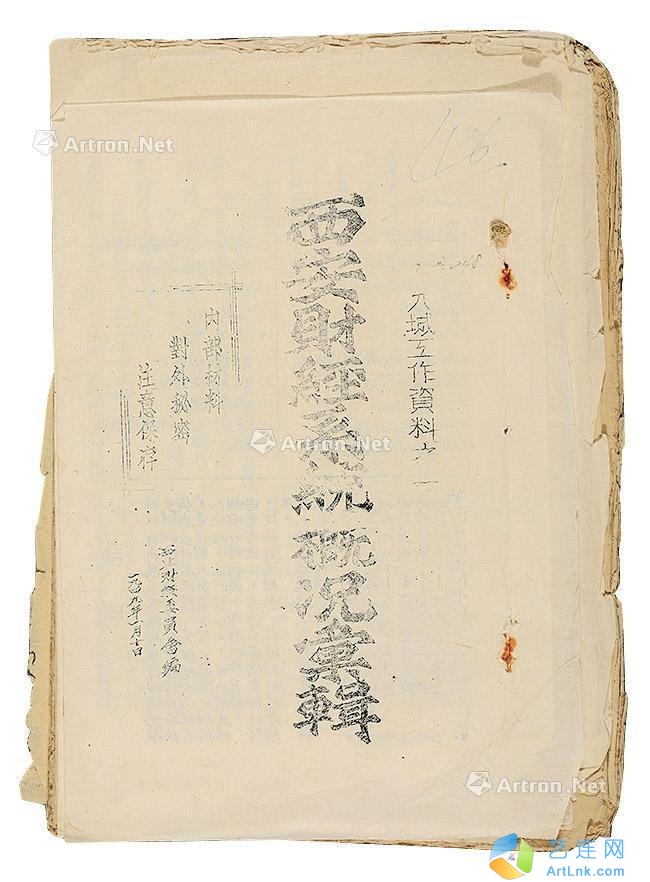 116
入城工作資料之一
西安財經系統概況彙輯
内部材料
對外秘密
注意保存
財經委員會編
一九四九年一月十日
Artron.Net
Artron.Net
Artron.Net
艺连网
ArtLnk.com